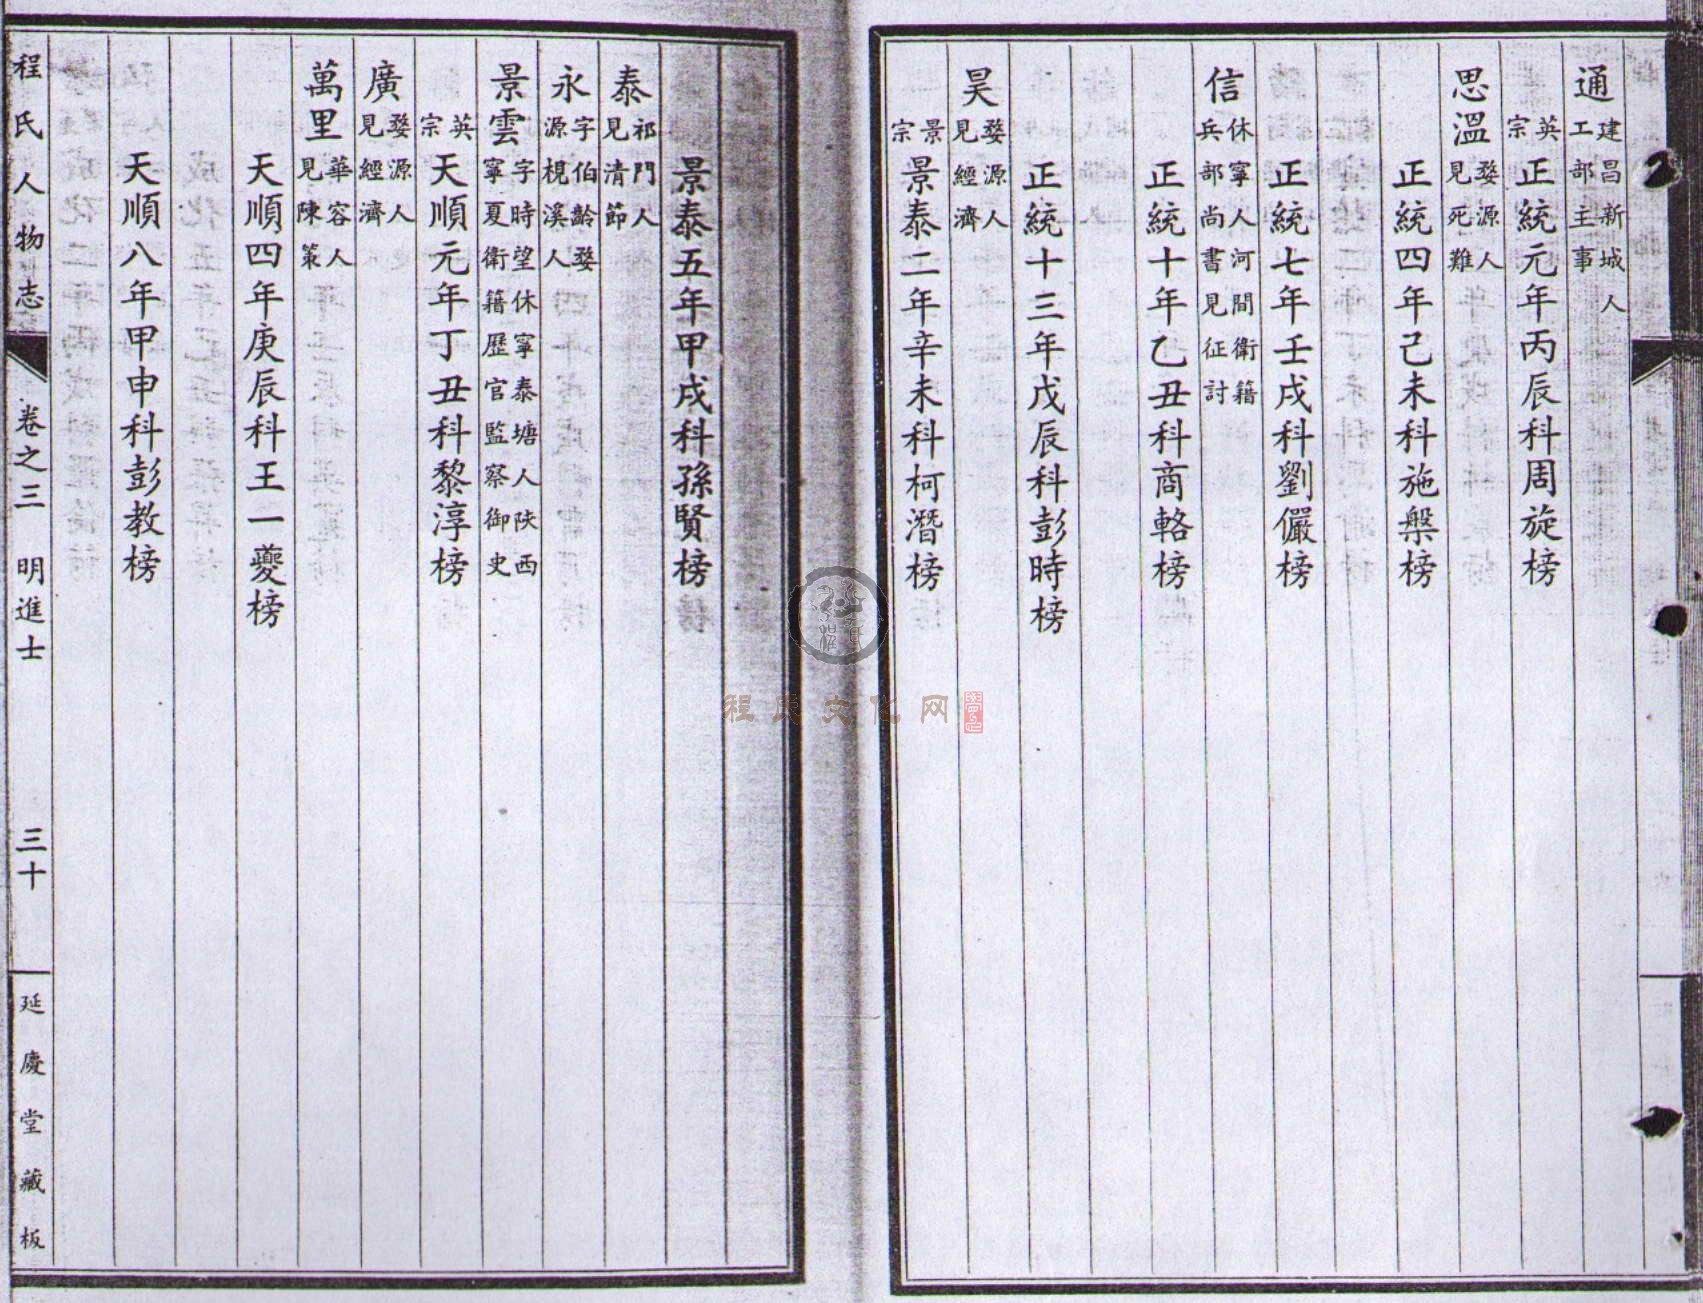 通 建昌新城人工部主事
英宗 正統元年丙辰科周旋榜
思溫 婺源人見死難
正統四年己未科施槃榜
正統七年壬戌科劉儼榜
信 休寧人河間衛籍兵部尚書見征討
正統十年乙丑科商輅榜
正統十三年戊辰科彭時榜
昊 婺源人見經濟
景宗 景泰二年辛未科柯潛榜
景泰五年甲戌科孫賢榜
泰 祁門人見清節
永 字伯齡婺源梘溪人
景雲 字時望休寧泰塘人陝西寧夏衛籍歷官監察御史
英宗 天順元年丁丑科黎淳榜
廣 婺源人見經濟
萬里 華容人見陳策
天順四年庚辰科王一夔榜
天順八年甲申科彭教榜
程氏人物志 卷之三 明進士 三十 延慶堂藏板
程氏文化网